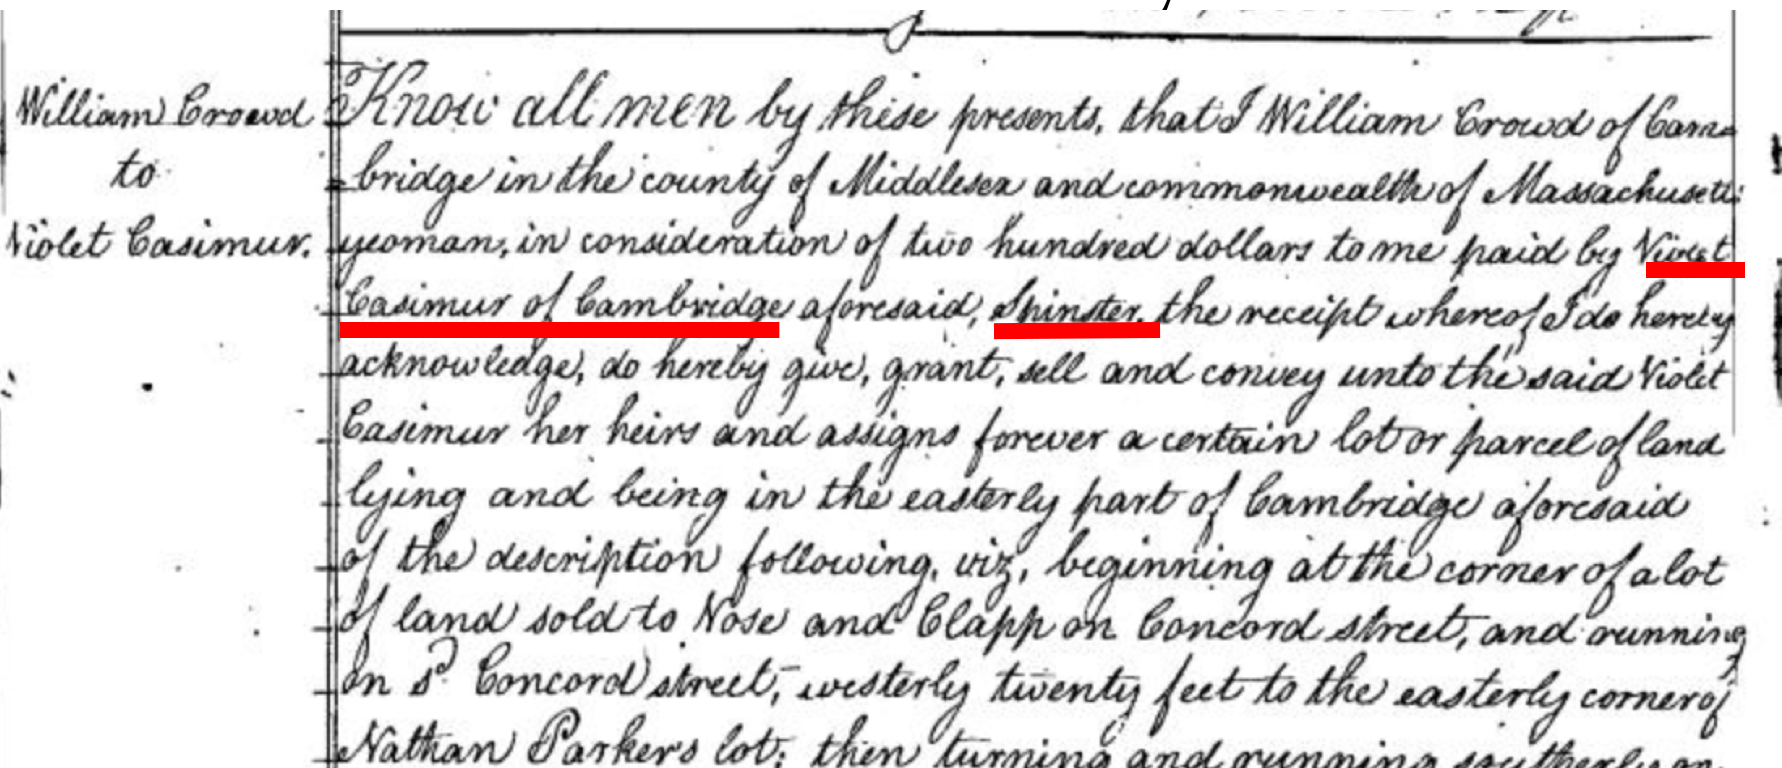 William Crowd
to
Violet Casimur.
Know all men by these presents, that I William Crowd of Cam-
bridge in the county of Middlesex and commonwealth of Massachusetts
yeoman, in consideration of two hundred dollars to me paid by Violet
Casimur of Cambridge aforesaid, Spinster, the receipt whereof I do hereby
acknowledge, do hereby give, grant, sell and convey unto the said Violet
Casimur her heirs and assigns forever a certain lot or parcel of land
lying and being in the easterly part of Cambridge aforesaid
of the description following, viz, beginning at the corner of a lot
of land sold to Nose and Clapp on Concord street, and running
on sd. Concord street, westerly twenty feet to the easterly corner of
Nathan Parker's lot; then turning and running southerly on